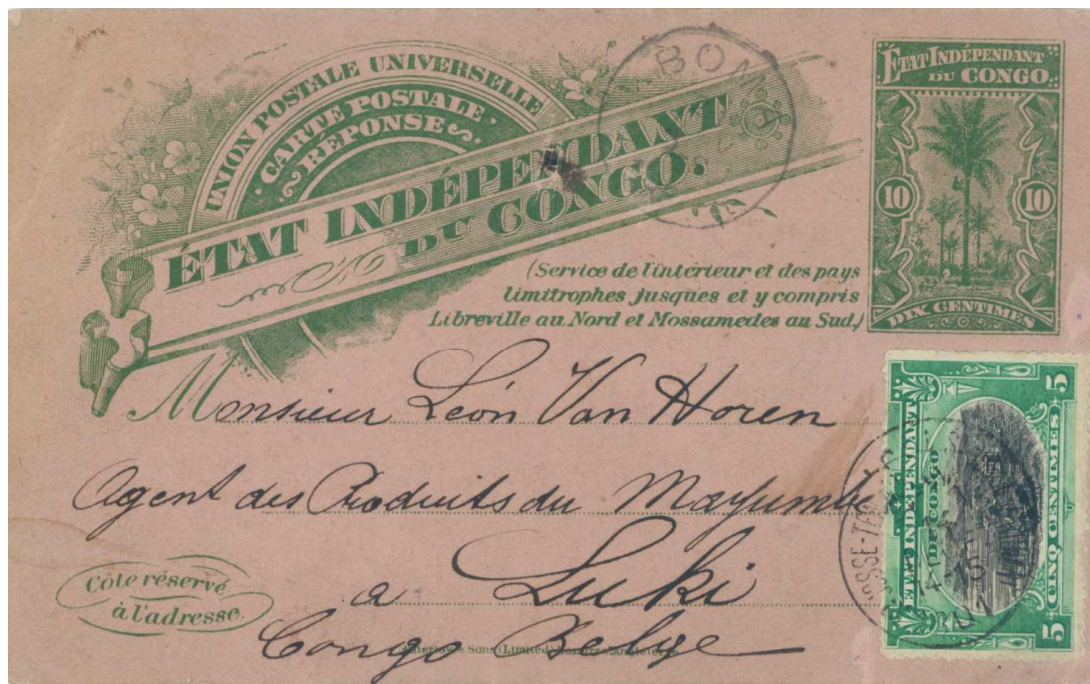 UNION POSTALE UNIVERSELLE
CARTE POSTALE
RÉPONSE
ÉTAT INDÉPENDANT
DU CONGO.
BOMA
ÉTAT INDÉPENDANT
DU CONGO
10 10
DIX CENTIMES
(Service de l'intérieur et des pays
limitrophes jusques et y compris
Libreville au Nord et Mossamedes au Sud,)
Monsieur Léon Van Horen
Agent des Produits du Mayumbe
a Luki
Congo Belge
Côté réservé
à l'adresse.
ÉTAT INDÉPENDANT
DU CONGO
5 5
CINQ CENTIMES